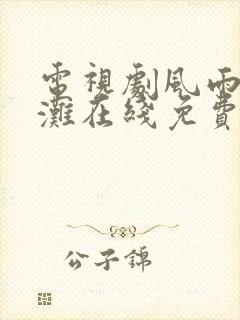 電視劇風雨
灘在綫免費
公子錦